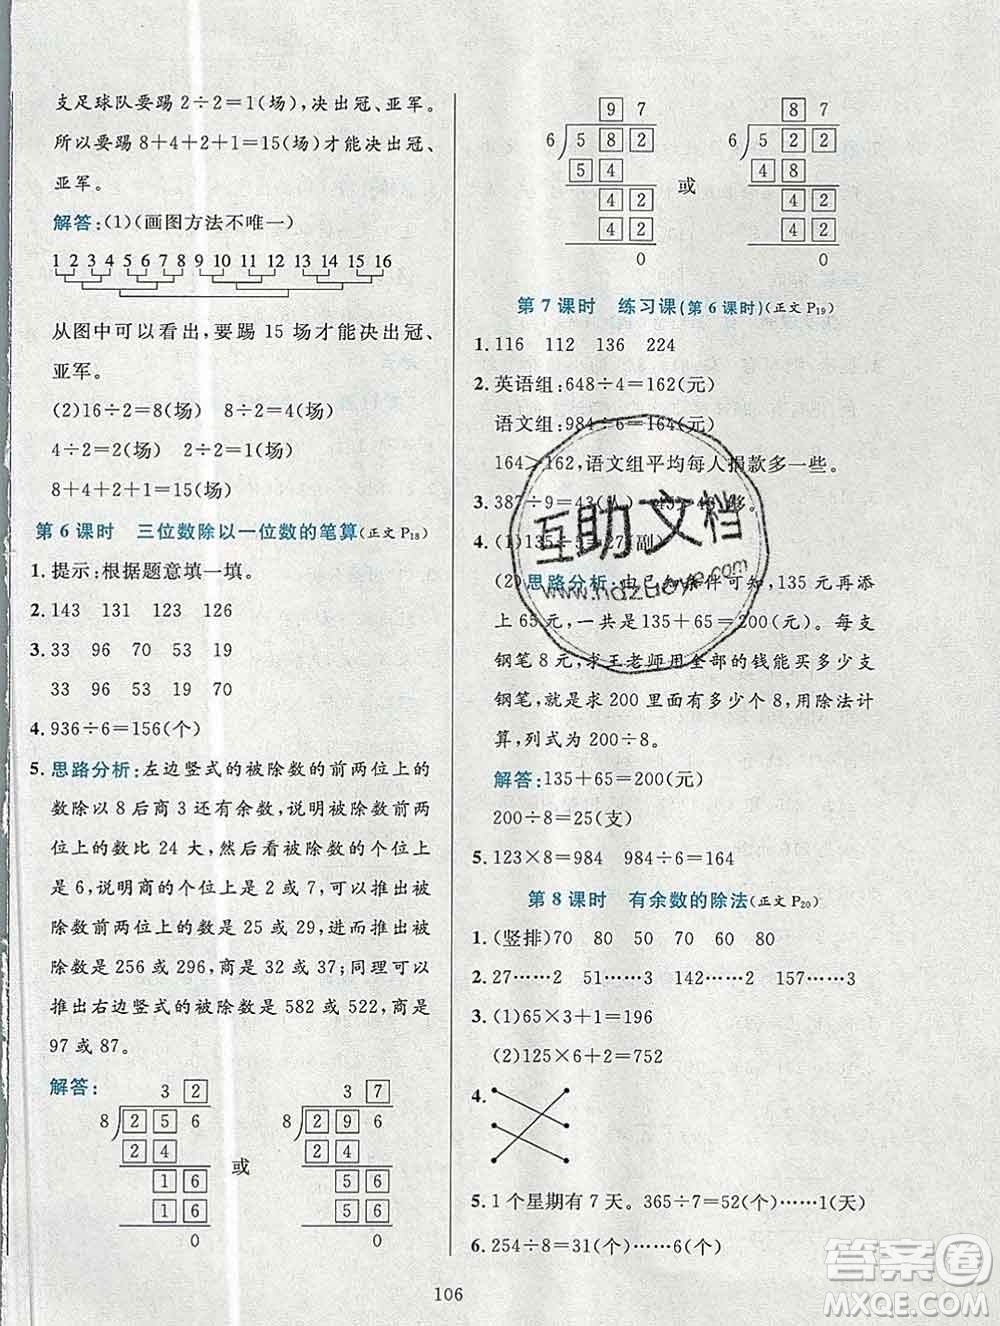 支足球队要踢 2÷2=1(场),决出冠、亚军。
所以要踢 8+4+2+1=15(场)才能决出冠、
亚军。
解答:(1)(画图方法不唯一)
1 2 3 4 5 6 7 8 9 10 11 12 13 14 15 16
从图中可以看出,要踢 15 场才能决出冠、
亚军。
(2)16÷2=8(场) 8÷2=4(场)
4÷2=2(场) 2÷2=1(场)
8+4+2+1=15(场)
第 6 课时 三位数除以一位数的笔算(正文 P18)
1. 提示:根据题意填一填。
2. 143 131 123 126
3. 33 96 70 53 19
33 96 53 19 70
4. 936÷6=156(个)
5. 思路分析:左边竖式的被除数的前两位上的
数除以 8 后商 3 还有余数,说明被除数前两
位上的数比 24 大,然后看被除数的个位上
是 6,说明商的个位上是 2 或 7,可以推出被
除数前两位上的数是 25 或 29,进而推出被
除数是 256 或 296,商是 32 或 37;同理可以
推出右边竖式的被除数是 582 或 522,商是
97 或 87。
解答:
3 2
8 2 5 6
2 4
1 6
1 6
0
或
3 7
8 2 9 6
2 4
5 6
5 6
0
9 7
6 5 8 2
5 4
4 2
4 2
0
或
8 7
6 5 2 2
4 8
4 2
4 2
0
第 7 课时 练习课(第 6 课时)(正文 P19)
1. 116 112 136 224
2. 英语组:648÷4=162(元)
语文组:984÷6=164(元)
164>162,语文组平均每人捐款多一些。
3. 387÷9=43(人)
4. (1)135÷5=27(副)
(2)思路分析:由已知条件可知,135 元再添
上 65 元,一共是 135+65=200(元)。每支
钢笔 8 元,求王老师用全部的钱能买多少支
钢笔,就是求 200 里面有多少个 8,用除法计
算,列式为 200÷8。
解答:135+65=200(元)
200÷8=25(支)
5. 123×8=984 984÷6=164
第 8 课时 有余数的除法(正文 P20)
1. (竖排)70 80 50 70 60 80
2. 27……2 51……3 142……2 157……3
3. (1)65×3+1=196
(2)125×6+2=752
4.
5. 1 个星期有 7 天。365÷7=52(个)……1(天)
6. 254÷8=31(个)……6(个)
106
互助文档
www.hdzuoye.com
答案圈
MXQE.COM